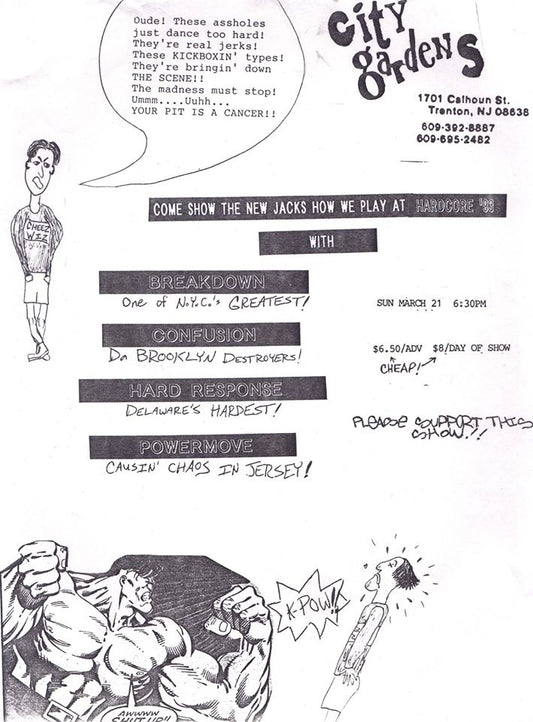 Oude! These assholes
just dance too hard!
They're real jerks!
These KICKBOXIN' types!
They're bringin' down
THE SCENE!!
The madness must stop!
Ummm....Uuhh...
YOUR PIT IS A CANCER!!
city
gardens
1701 Calhoun St.
Trenton, NJ 08638
609-392-8887
609-695-2482
CHEEZ
WIZ
COME SHOW THE NEW JACKS HOW WE PLAY AT HARDCORE '93
WITH
BREAKDOWN
One of N.Y.C.'s GREATEST!
SUN MARCH 21 6:30PM
CONFUSION
Da BROOKLYN DESTROYERS!
$6.50/ADV $8/DAY OF SHOW
CHEAP!
HARD RESPONSE
DELAWARE'S HARDEST!
PLEASE SUPPORT THIS
SHOW.!!
POWERMOVE
CAUSIN' CHAOS IN JERSEY!
K-POW!!
AWWWW
SHUT UP!!